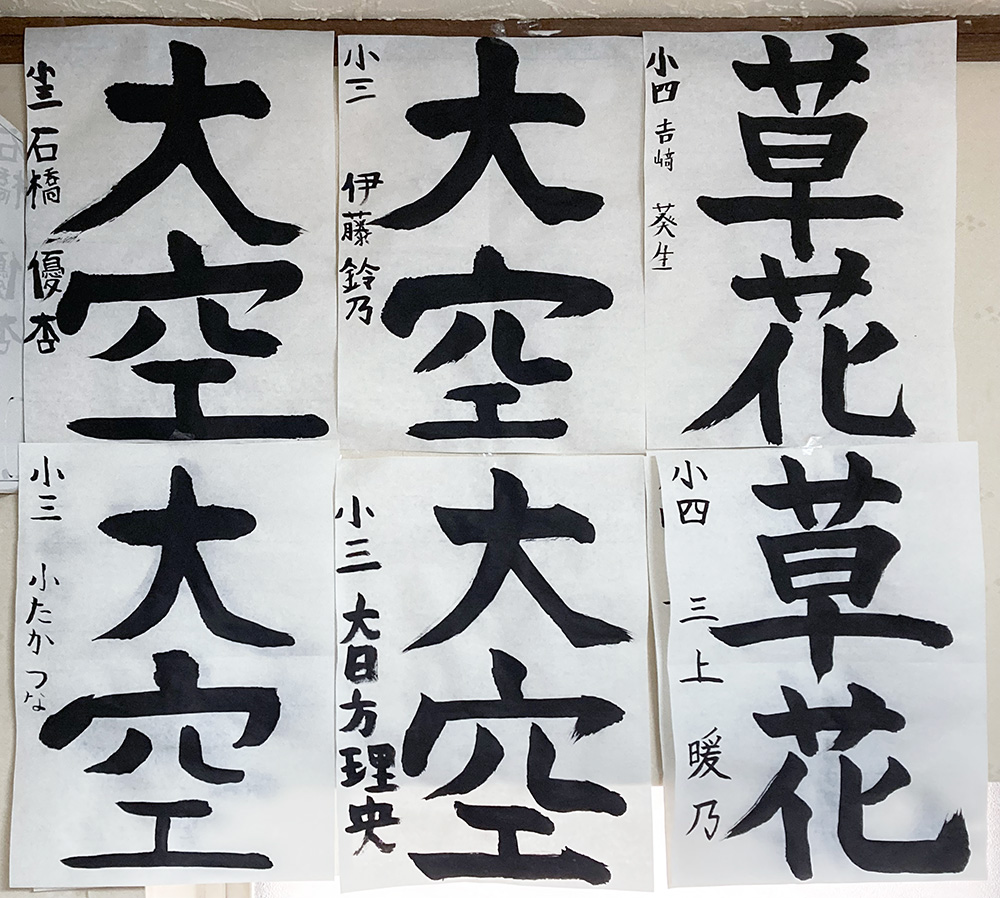 大空
小三 石橋 優杏
大空
小三 伊藤鈴乃
草花
小四 吉﨑 葵生
大空
小三 小たか つな
大空
小三 大日方理央
草花
小四 三上 暖乃